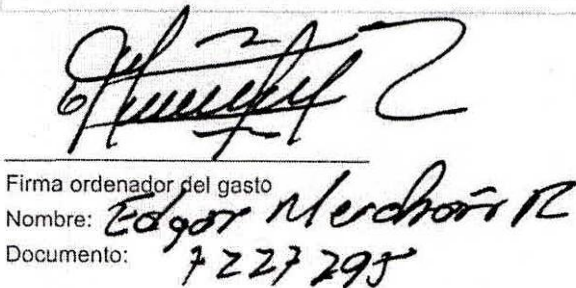 Firma ordenador del gasto
Nombre: Edgar Merchán R
Documento: 7227295